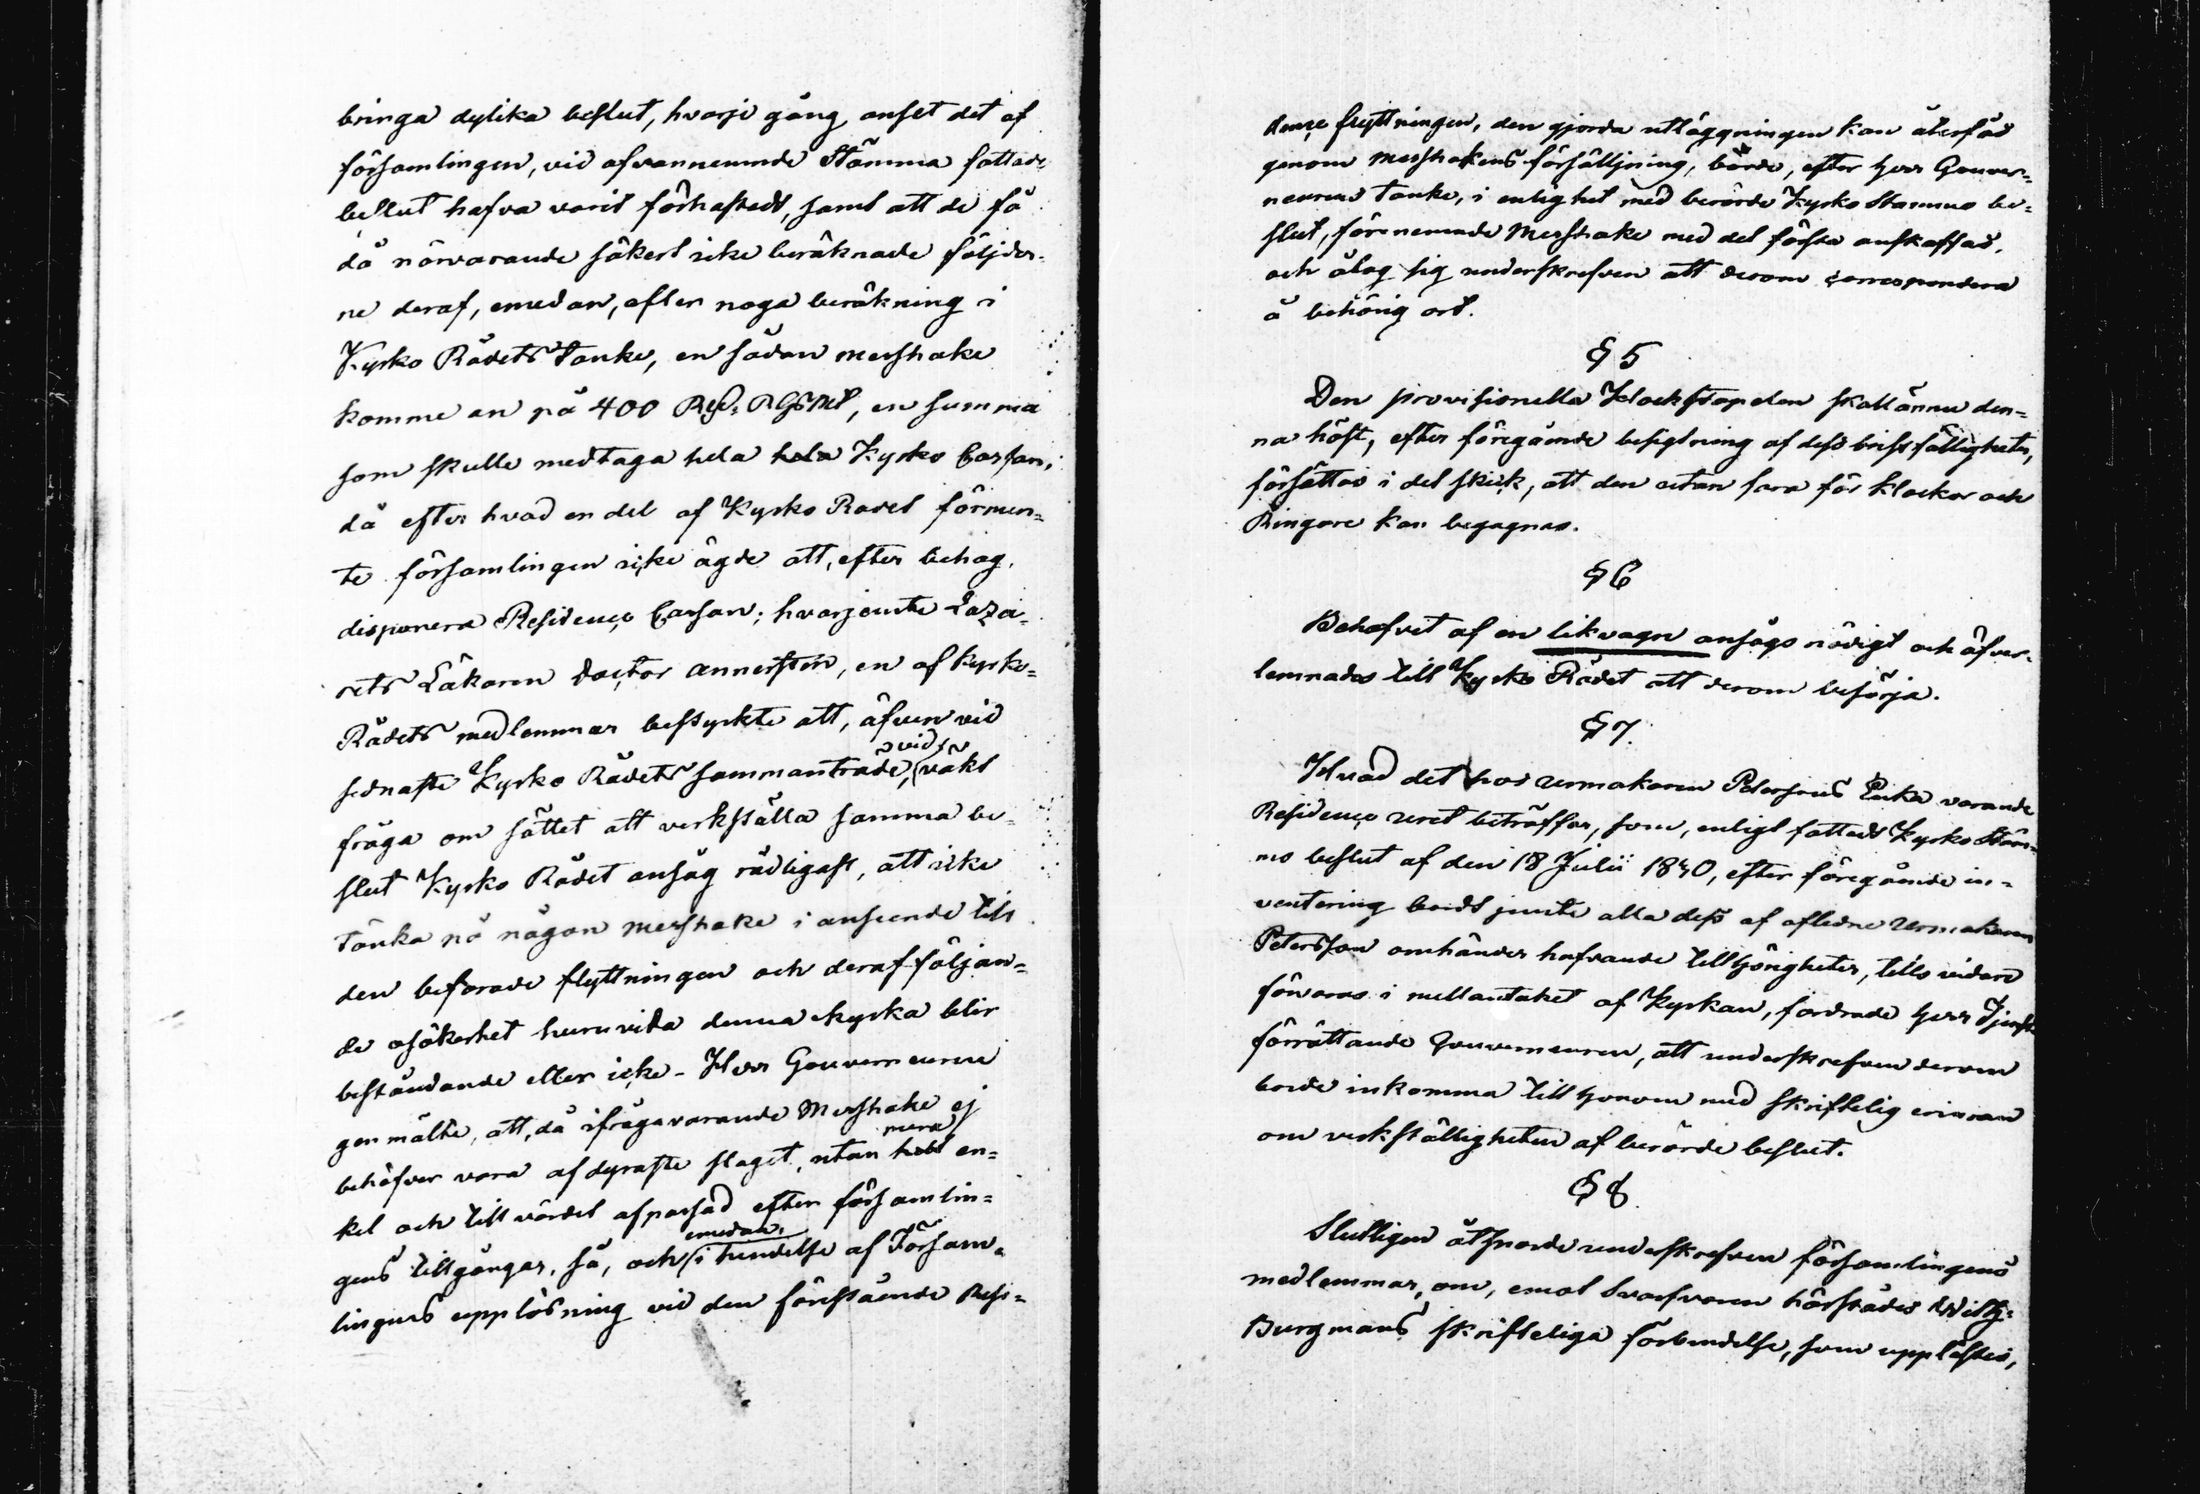 bringa dylika beslut, hvarje gång ansett det af
församlingen, vid ofvannemnde Stämma fattade
beslut hafva varit förhastadt, samt att de få
då närvarande säkert icke beräknade följder-
ne deraf, emedan, efter noga beräkning i
Kyrko Rådets tanke, en sådan messhake
komme an på 400 Rd: RGSMt, en summa
som skulle medtaga hela hela Kyrko Cassan,
då efter hvad en del af Kyrko Rådet förmen=
te församlingen icke ägde att, efter behag,
disponera Residence Cassan; hvarjemte Laza-
rets Läkaren Doctor Annerstén, en af Kyrko=
Rådets medlemmar bestyrkte att, äfven vid
sednaste Kyrko Rådets sammanträde, vid väkt
fråga om sättet att verkställa samma be-
slut Kyrko Rådet ansåg rådligast, att icke
tänka på någon messhake i anseende till
den befarade flyttningen och deraf följan=
de osäkerhet huruvida denna kyrka blir
beståndande eller icke - Herr Gouverneuren
genmälte, att, då ifrågavarande Messhake ej
behöfver vara af dyraste slaget, utan helt mera en=
kel och till värdet afpassad efter församlin=
gens tillgångar, så, och emedan, i händelse af Försam-
lingens upplösning vid den förestående Resi=
dence flyttningen, den gjorda utläggningen kan återfås
genom messhakens försälljning, borde, efter Herr Gouver=
neurens tanke, i enlighet med berörde Kyrko Stämmas be=
slut, förenemnde Messhake med det första anskaffas,
och åtog sig underskrefven att derom correspondera
å behörig ort.
§ 5
Den provisionella Klockstapelen skall ännu den=
na höst, efter föregående besigtning af dess bristfälligheter,
försättas i det skick, att den utan fara för klockor och
Ringare kan begagnas.
§ 6
Behofvet af en likvagn ansågs nödigt och öfver-
lemnades till Kyrko Rådet att derom besörja.
§ 7.
Hvad det hos Urmakaren Peterssons Enka varande
Residence uret beträffar, som, enligt fattadt Kyrko Stäm-
mo beslut af den 18 Julii 1840, efter föregående in-
ventering bordt jemte alla dess af aflidne Urmakaren
Petersson omhänder hafvande tillhörigheter, tills vidare
förvaras i mellantaket af Kyrkan, fordrade Herr Tjenst
förrättande Gouverneuren, att underskrefven derom
borde inkomma till honom med skriftelig erinran
om verkställigheten af berörde beslut.
§ 8
Slutligen åtsporde underskrefven församlingens
medlemmar, om, emot Svarfvaren härstädes Wilh:
Burgmans skrifteliga förbindelse, som upplästes,